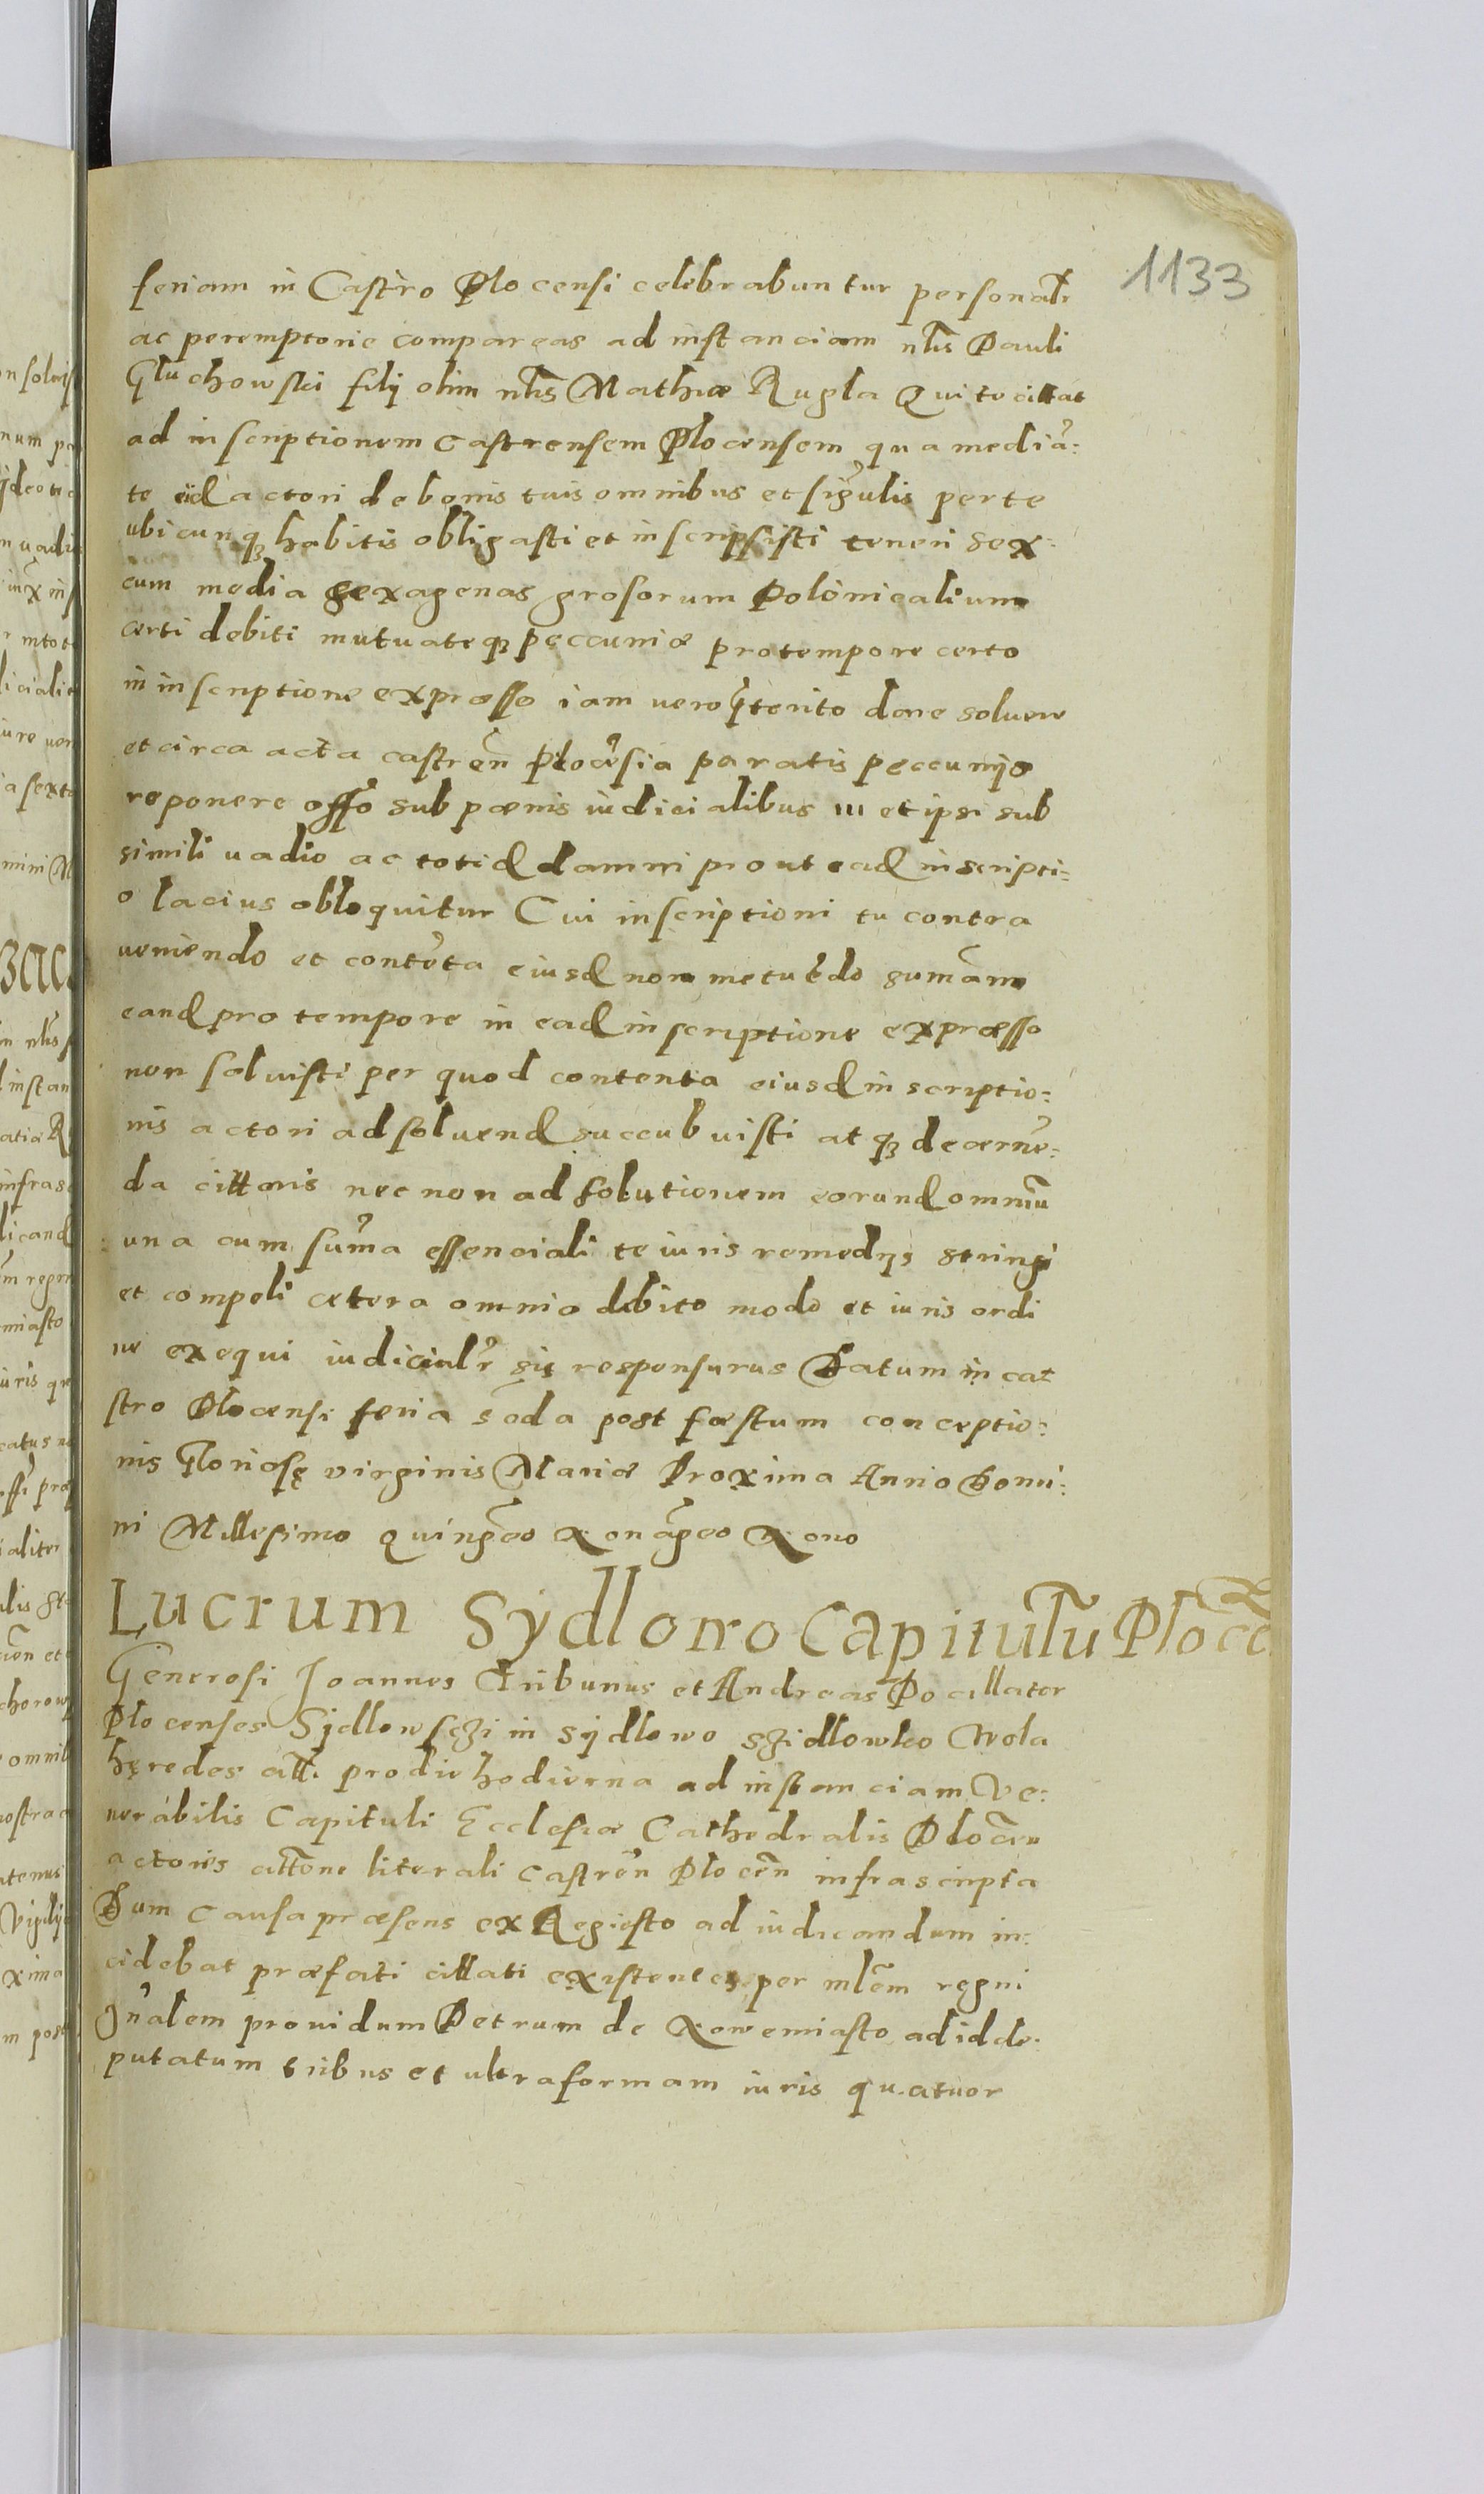 1133
feriam in Castro Plocensi celebrabuntur personalr
ac peremptorie compareas ad instanciam nlis Pauli
Gluchowski filij olim nlis Mathiæ Rugla Qui te cittat
ad inscriptionem Castrensem Plocensem qua mediā:
te eid actori de bonis tuis omnibus et sīgulis per te
ubicunqꝫ habitis obligasti et inscripsisti teneri sex
cum media sexagenas grosorum Polonicalium
certi debiti mutuateqꝫ peccuniæ pro tempore certo
in inscriptione expresso iam vero p̄terito dare soluere
et circa acta castren̄ Plocēsia paratis peccunijs
reponere offō sub pœnis iudicialibus III et ipsi sub
simili uadio ac totid damni prout ead inscripti=
o lacius obloquitur Cui inscriptioni tu contra
veniendo et contēta eiusd non metuēdo sumam̄
eand pro tempore in ead inscriptione expræsso
non soluisti per quod contenta eiusd inscriptio=
nis actori ad soluend succubuisti atqꝫ decernē=
da cittaris nec non ad solutionem eorund omniū
una cum sum̄a essenciali te iuris remedijs stringi
et compeli cetera omnia debito modo et iuris ordi
ne exequi iudicialr̄ sis responsurus Datum in cas
stro Plocensi feria s̄cda post fæstum conceptio=
nis Gloriosę virginis Mariæ Proxima Anno Domi=
ni Millesimo quingēo Nonāgeo Nono
Lucrum Sydlowo Capitulū Plocē
Generosi Joannes Tribunus et Andreas Pocillator
Plocenses Sydlowsczi in Sydlowo Szidlowko Wola
hęredes citt. pro die hodierna ad instanciam Ve=
nerabilis Capituli Ecclesiæ Cathedralis Plocēn
actoris cittōne literali Castrēn Plocēn infrascripta
Dum Causa præsens ex Regiesto ad iudicandum in=
cidebat præfati cittati existentes per mlēm regni
Gn̄alem prouidum Petrum de Nowemiasto ad id de=
putatum tribus et ultra formam iuris quatuor